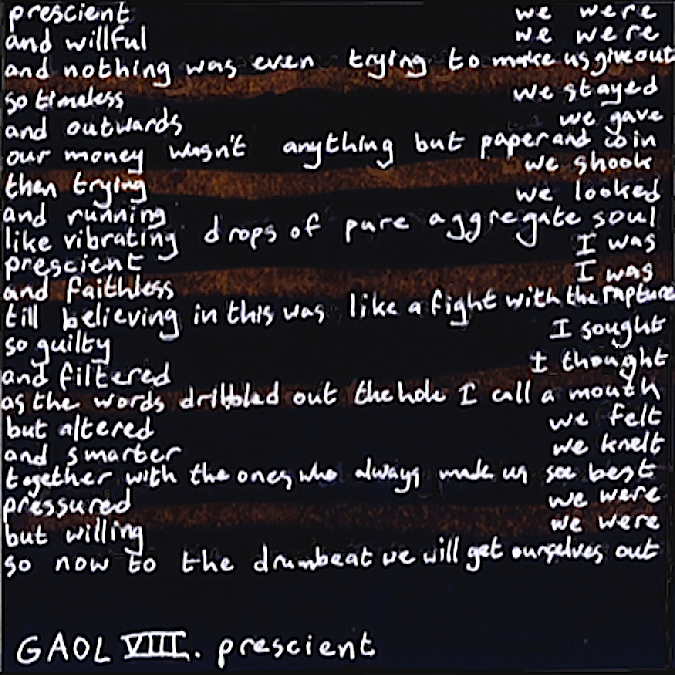 prescient we were
and willful we were
and nothing was even trying to make us give out
so timeless we stayed
and outwards we gave
our money wasn't anything but paper and coin
then trying we shook
and running we looked
like vibrating drops of pure aggregate soul
prescient I was
and faithless I was
till believing in this was like a fight with the rapture
so guilty I sought
and filtered I thought
as the words dribbled out the hole I call a mouth
but altered we felt
and smarter we knelt
together with the ones who always made us see best
pressured we were
but willing we were
so now to the drumbeat we will get ourselves out
GAOL VIII. prescient